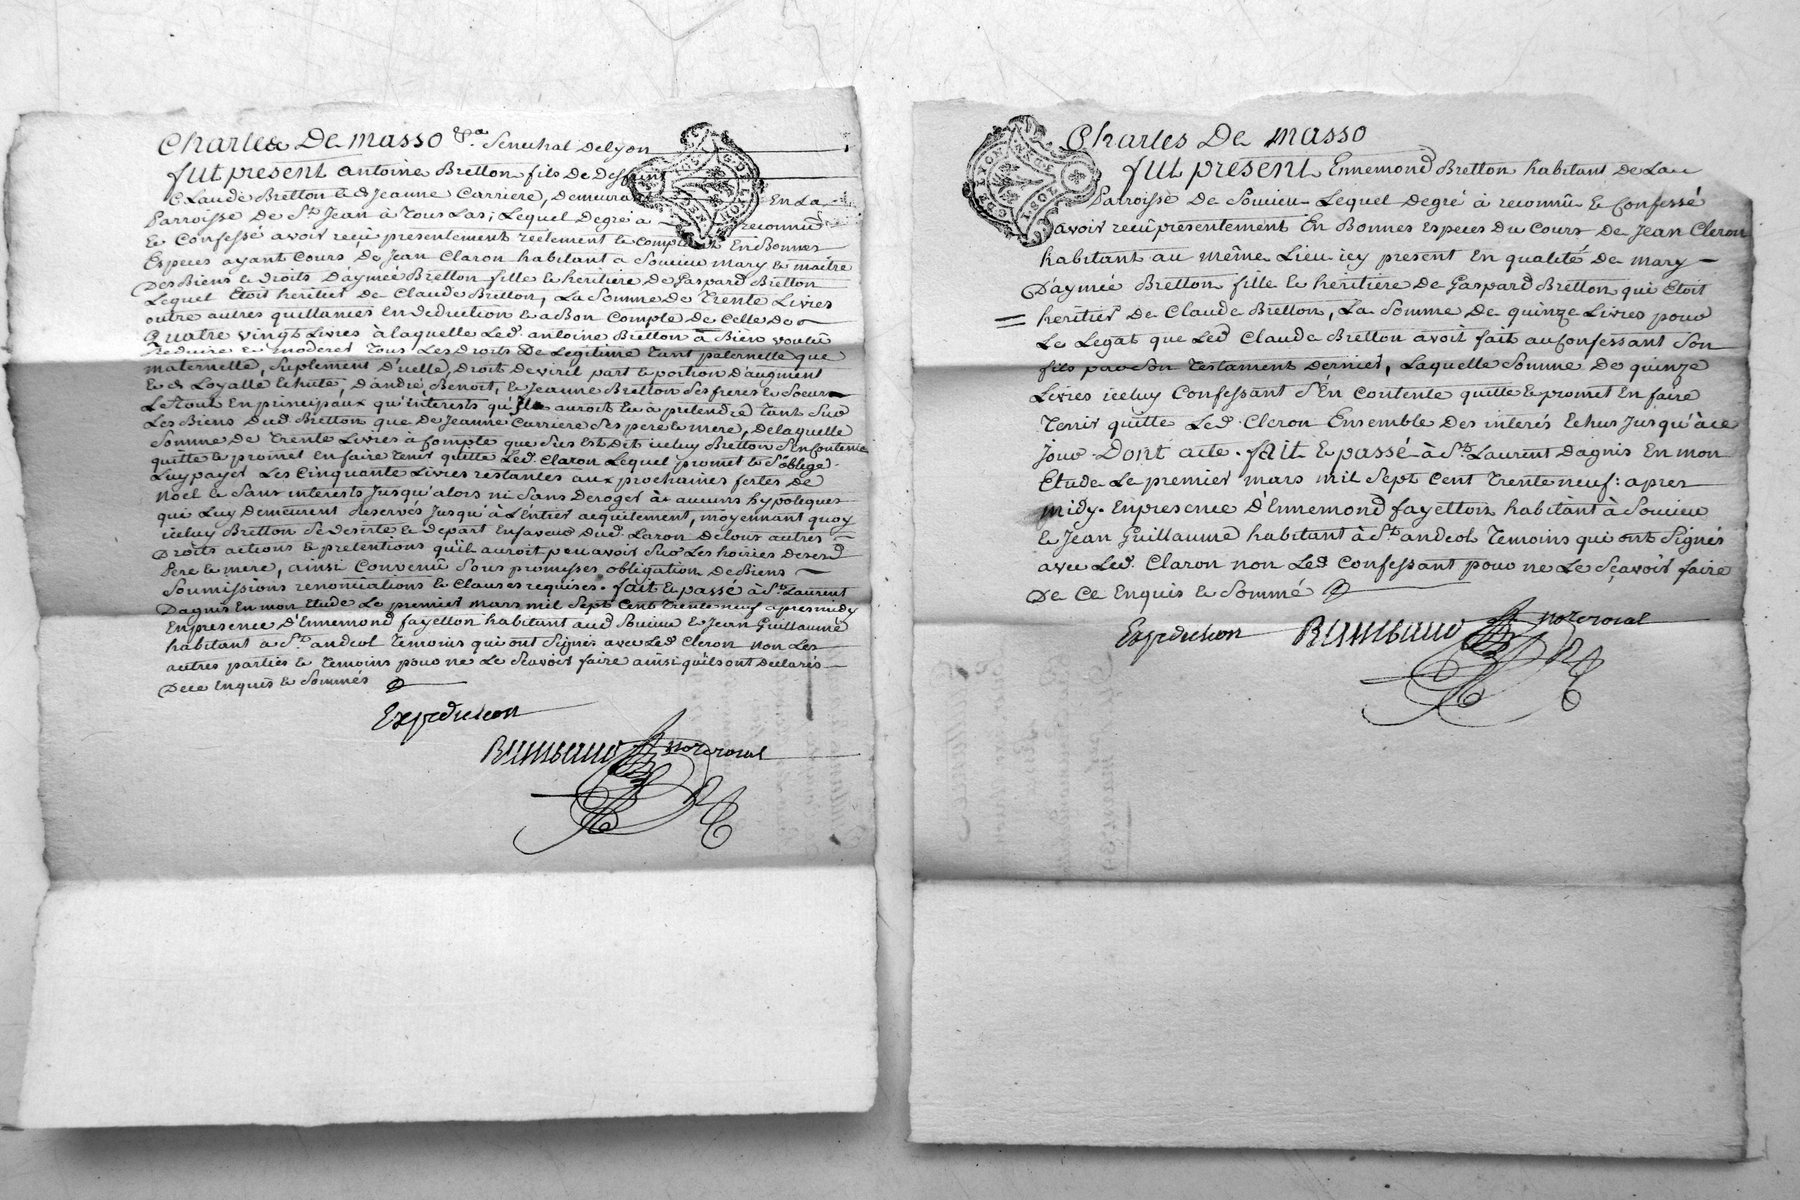 Charles De masso &a. Senechal delyon
fut present antoine Bretton fils De Deffunt
Claude Bretton & d Jeanne Carriere, Demeurant En La
Parroisse De St. Jean à Tous Las; Lequel Degré a reconnu
& Confessé avoir reçu presentement réelement & comptant En Bonnes
Especes ayant Cours De Jean Claron habitant à Soucieu mary & maître
Des Biens & Droits D'aymée Bretton fille & heritiere De Gaspard Bretton
Lequel Etoit heritier De Claude Bretton, La Somme De Trente Livres
outre autres quittances En deduction & a Bon Compte De Celle De
Quatre vingt Livres à laquelle Led. antoine Bretton à Bien voulu
Reduire & moderer Tous Les Droits De Legitime Tant paternelle que
maternelle, Suplement D'icelle, Droit De viril part & portion D'augment
& d Loyalle Echute, D'andré, Benoit, & Jeanne Bretton Ses freres & Soeur
Le Tout En principaux qu'interests qu'Il auroit Eu à pretendre Tant Sur
Les Biens Dud. Bretton que De Jeanne Carriere Ses pere & mere, Delaquelle
Somme De Trente Livres à Compte que Sus Est Dit iceluy Bretton S'En Contente
quitte & promet En faire Tenir quitte Led. Claron Lequel promet & S'oblige
Luy payer Les Cinquante Livres restantes aux prochaines fertes De
Noel & Sans interests Jusqu'alors ni Sans Deroger à aucuns hypoteques
qui Luy Demeurent Reservés Jusqu'à L'Entier aequitement, moyennant quoy
iceluy Bretton Se Desiste & Depart En faveur Dud. Laron De Tous autres
Droits actions & pretentions qu'il auroit peu avoir Sur Les hoiries Desesd
Pere & mere, ainsi Convenu Sous promesses obligation De Biens
Soumissions renonciations & Clauses requises. fait & passé à St. Laurent
Dagnis En mon Etude Le premier mars mil Sept Cent Trente neuf apres midy
En presence D'Ennemond fayetton habitant aud Soucieu & Jean Guillaume
habitant à St. andeol Temoins qui ont Signés avec Led. Cleron non Les
autres parties & Temoins pour ne Le Scavoir faire ainsi quils ont Declarés
De Ce Enquis & Sommés
Expedition
notr royal
Charles De masso
fut present Ennemond Bretton habitant De La
Parroisse De Soucieu Lequel Degré à reconnû & Confessé
avoir reçû presentement En Bonnes Especes Du Cours De Jean Cleron
habitant au même Lieu icy present En qualité De mary
D'aymée Bretton fille & heritiere De Gaspard Bretton qui Etoit
heritier De Claude Bretton, La Somme De quinze Livres pour
Le Legat que Led. Claude Bretton avoit fait au Confessant Son
fils par Son Testament Dernier, Laquelle Somme De quinze
Livres iceluy Confessant S'En Contente quitte & promet En faire
Tenir quitte Led. Cleron Ensemble Des interés Echus Jusqu'à ce
Jour. Dont acte. fait & passé à St. Laurent Dagnis En mon
Etude Le premier mars mil Sept Cent Trente neuf: apres
midy. En presence D'Ennemond fayetton habitant à Soucieu
& Jean Guillaume habitant à St. andeol Temoins qui ont Signés
avec Led. Claron non Led. Confessant pour ne Le Sçavoir faire
De Ce Enquis & Sommé
Expedition
notr royal